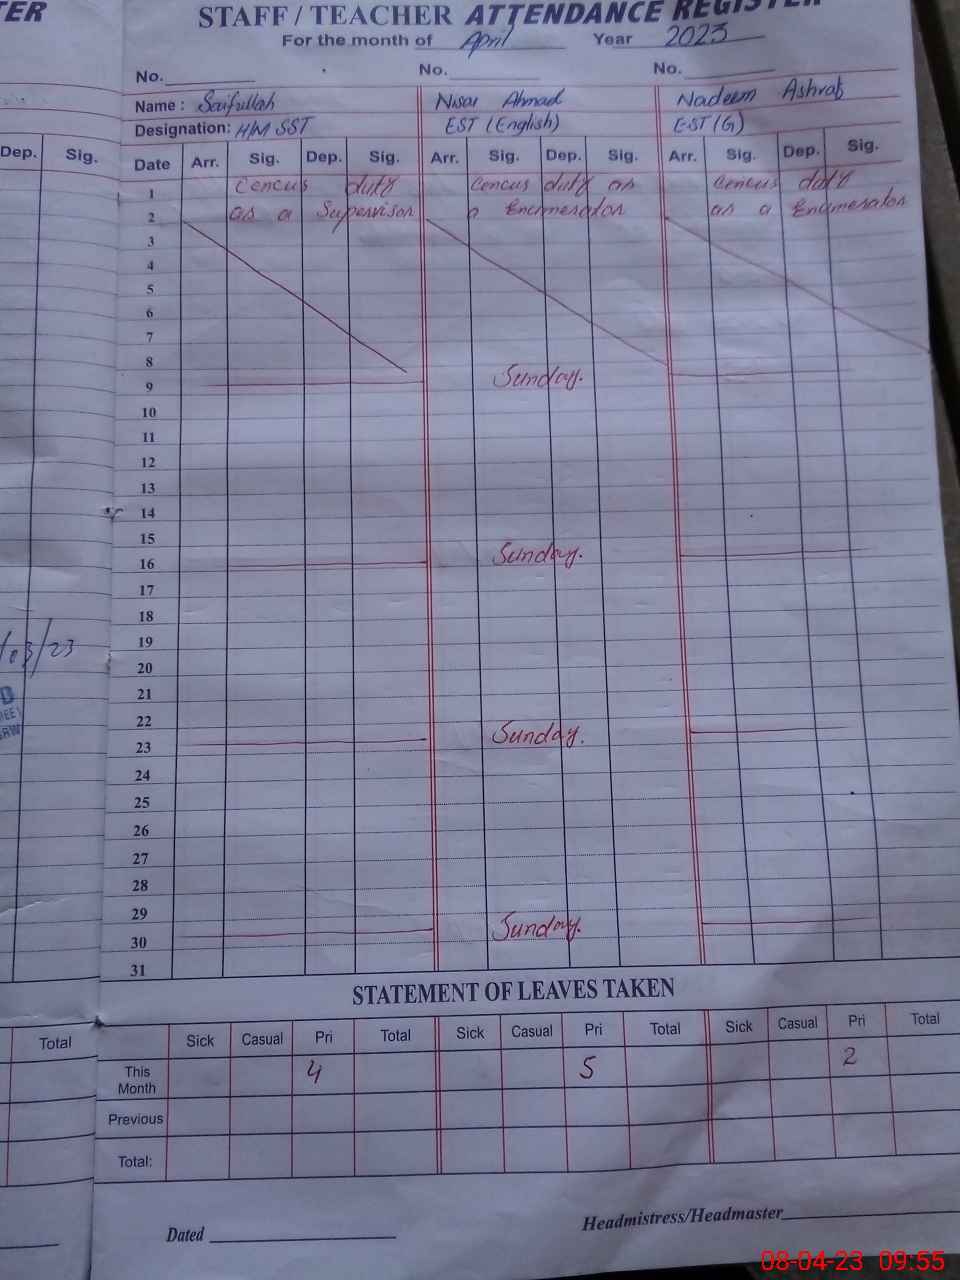 TER
STAFF / TEACHER ATTENDANCE REGISTER
For the month of April Year 2023
No. No. No.
Name : Saifullah Nisar Ahmad Nadeem Ashraf
Designation: H/M SST EST (English) EST (G)
Dep. Sig. Date Arr. Sig. Dep. Sig. Arr. Sig. Dep. Sig. Arr. Sig. Dep. Sig.
1 Cencus duty Cencus duty as Cencus duty
2 as a Supervisor a Enumerator as a Enumerator
3
4
5
6
7
8
9 Sunday.
10
11
12
13
14
15
16 Sunday.
17
18
19
/03/23
20
21
22
23 Sunday.
24
25
26
27
28
29
30 Sunday.
31
STATEMENT OF LEAVES TAKEN
Total Sick Casual Pri Total Sick Casual Pri Total Sick Casual Pri Total
This Month 4 5 2
Previous
Total:
Dated Headmistress/Headmaster
08-04-23 09:55